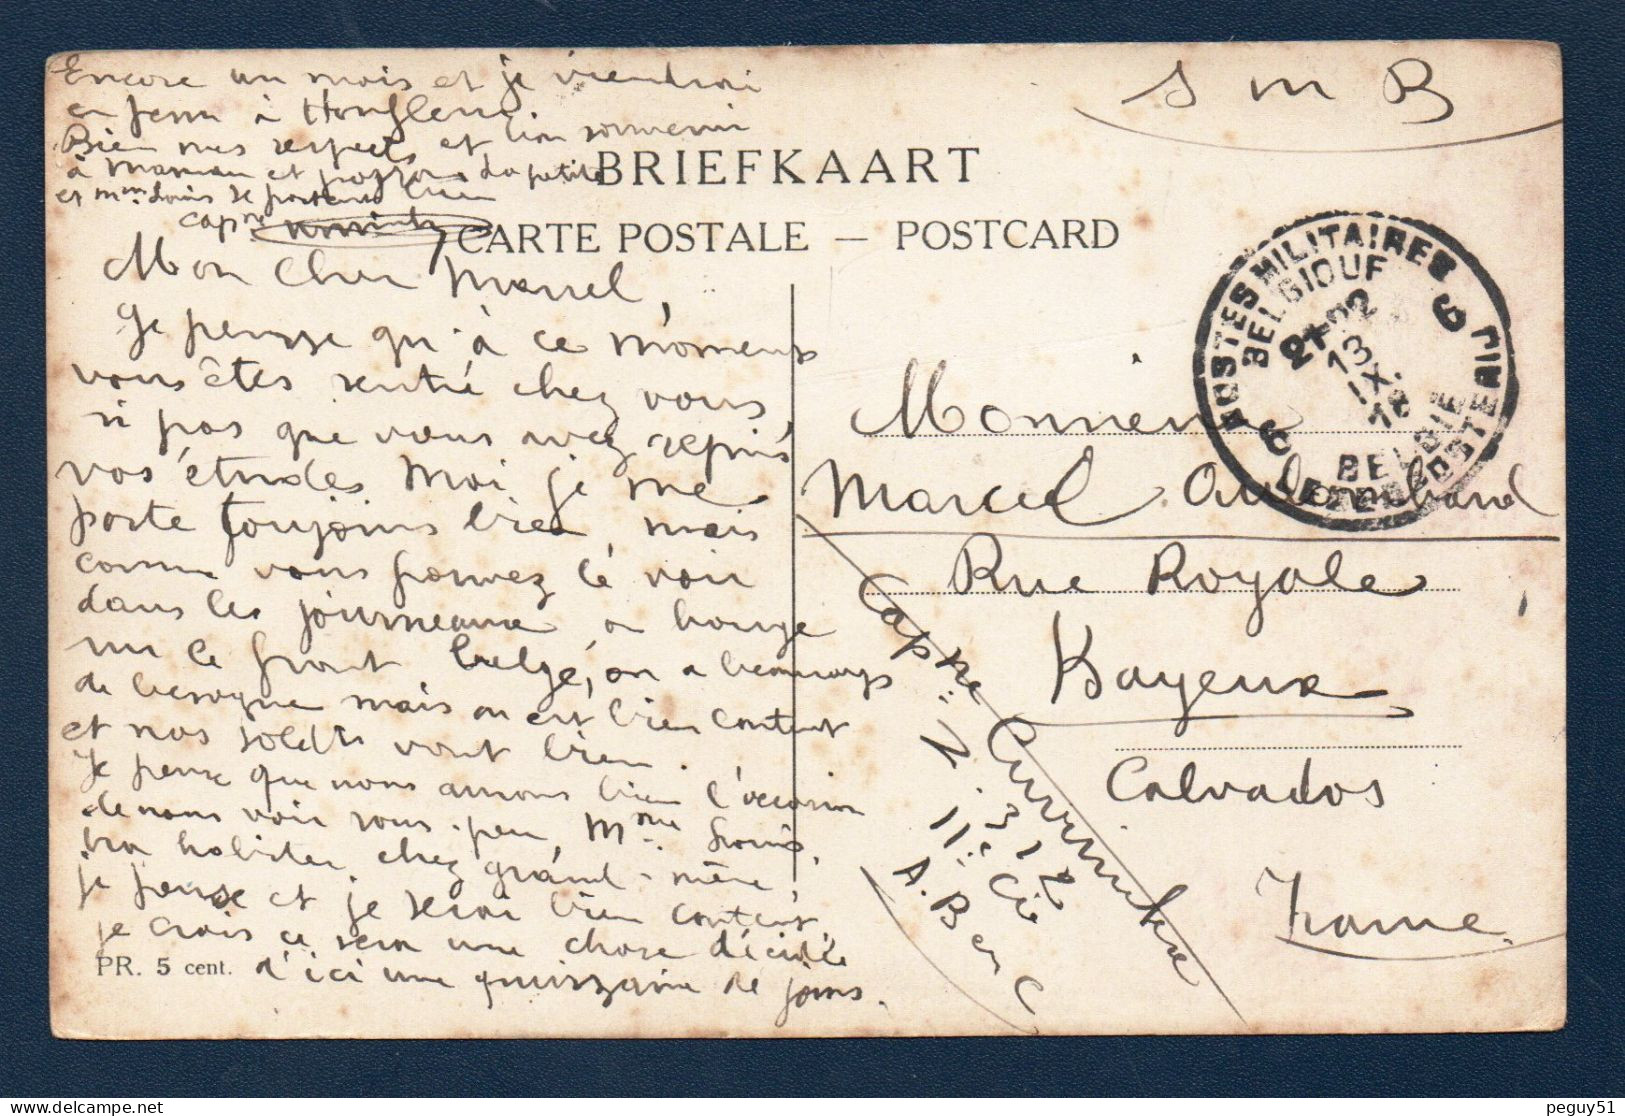 Encore un mois et je viendrai
en perm à Honfleur.
Bien mes respects et bon souvenir
à Maman et
et Mme Louis se portent bien
capne
S M B
BRIEFKAART
CARTE POSTALE — POSTCARD
Mon Cher Marcel,
Je pensse qu'à ce moment
vous êtes rentré chez vous
si pas que vous avez repris
vos études Moi je me
porte toujours bien, mais
comme vous pouvez le voir
dans les journeaux, on bouge
sur le front belge, on a beaucoup
de besogne mais on est bien content
et nos soldts vont bien.
Je pense que nous aurons bien l'occasion
de nous voir sous peu, Mme Louis,
ira habiter chez grand-mère,
je pense et je serai bien content,
je crois ce sera une chose décidée
d'ici une quinzaine de jours.
PR. 5 cent.
POSTES MILITAIRES
BELGIQUE
21-22
13
IX
18
BELGIE
LEGERPOSTERIJ
6 6
Monsieur
Marcel
Rue Royale
Bayeux
Calvados
France
Capne
Z. 312
11e Cie
A. B
peguy51